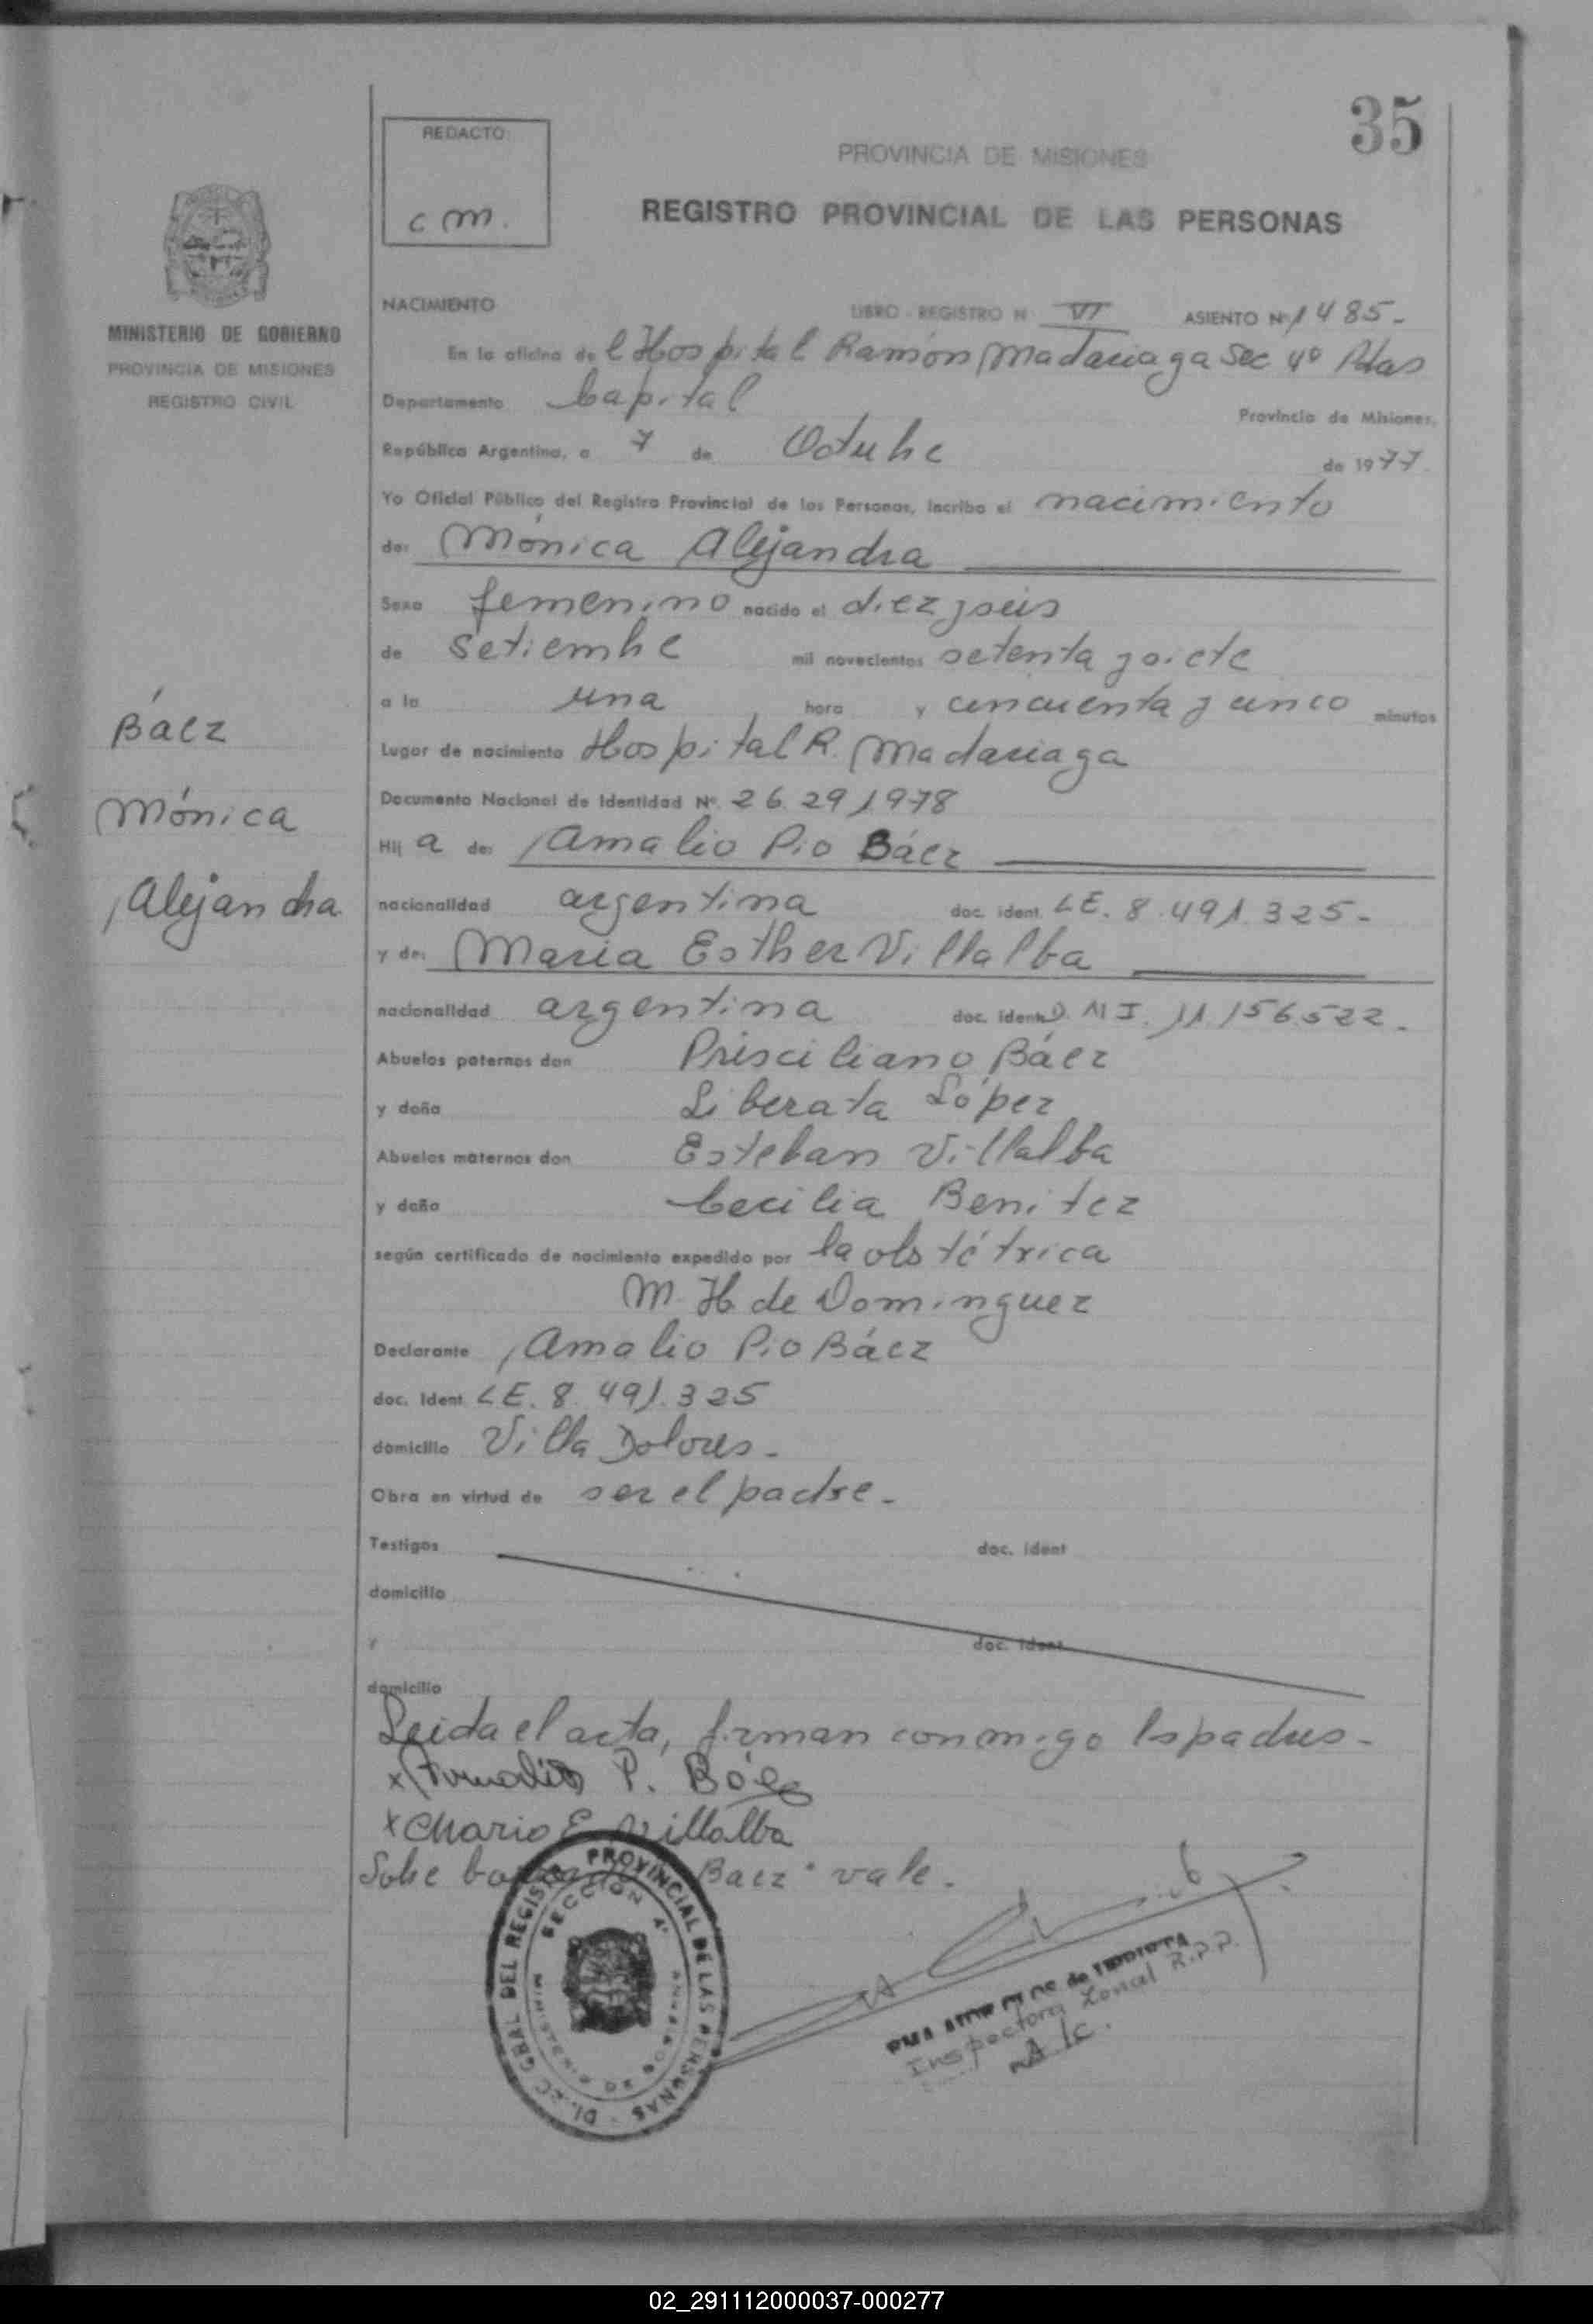 35
REDACTO
C M.
PROVINCIA DE MISIONES
REGISTRO PROVINCIAL DE LAS PERSONAS
MINISTERIO DE GOBIERNO
PROVINCIA DE MISIONES
REGISTRO CIVIL
NACIMIENTO LIBRO - REGISTRO N VI ASIENTO Nº 1485.-
En la oficina de l Hospital Ramón Madariaga Sec 4º Pdas
Departamento Capital Provincia de Misiones,
República Argentina, a 7 de Octubre de 1977.
Yo Oficial Público del Registro Provincial de las Personas, inscribo el nacimiento
de: Mónica Alejandra
Sexo femenino nacido el diez y seis
de Setiembre mil novecientos setenta y siete
a la una hora y cincuenta y cinco minutos
Báez
Mónica
Alejandra
Lugar de nacimiento Hospital R. Madariaga
Documento Nacional de Identidad Nº. 26.291.978
Hij a de: Amalio Pio Báez
nacionalidad argentina doc. ident. LE. 8.491.325-
y de: Maria Esther Villalba
nacionalidad argentina doc. ident. D.N.I. 11.156.522.-
Abuelos paternos don Prisciliano Báez
y doña Liberata López
Abuelos maternos don Esteban Villalba
y doña Cecilia Benitez
según certificado de nacimiento expedido por la obstétrica
M. H. de Dominguez
Declarante Amalio Pio Báez
doc. Ident LE. 8.491.325
domicilio Villa Dolores.-
Obra en virtud de ser el padre.-
Testigos doc. ident
domicilio
y doc. ident
domicilio
Leida el acta, firman conmigo los padres.-
x Amalio P. Báez
x Maria E Villalba
Sobre Baez" vale.
DIREC GRAL. DEL REGISTRO PROVINCIAL DE LAS PERSONAS
SECCION 4ª
de
Inspectora Zonal R.P.P.
A/c.
02_291112000037-000277